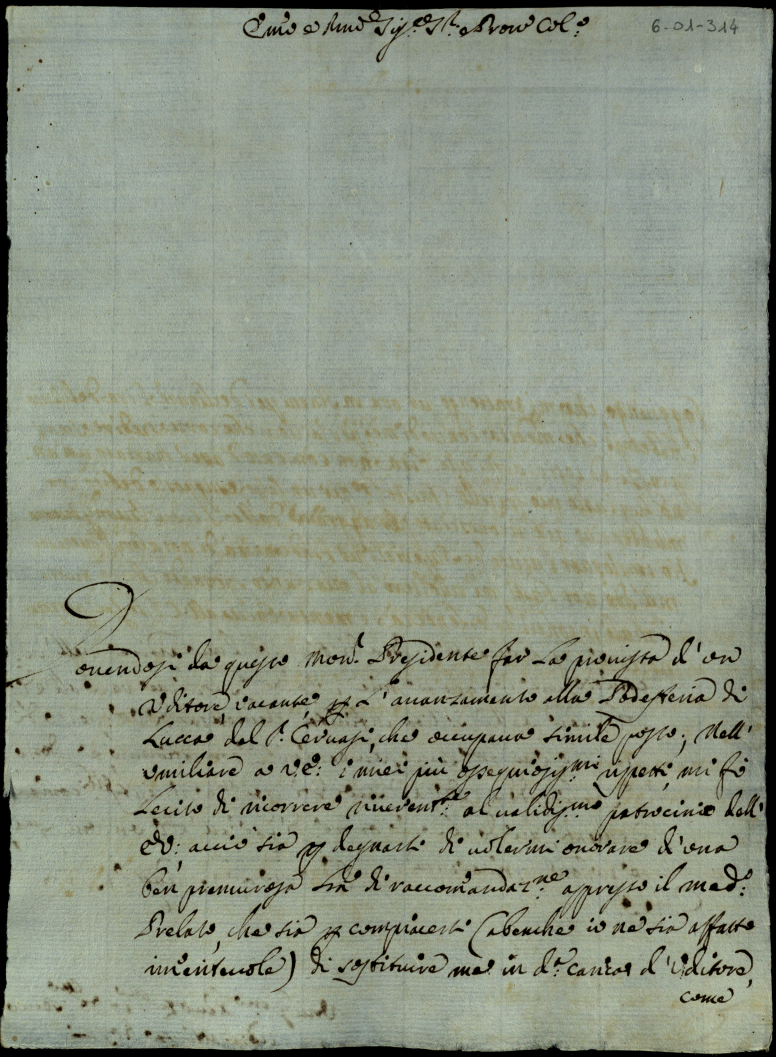 Em̃o e Rmo Sig.re Sig.r e Pron Col.o
6-01-314
Dovendosi da questo Mons.r Presidente far la provista d'un
Uditore vacante, per l'avanzamento alla Podesteria di
Lucca del S.r Cervasi, che occupava simile posto; Nell'
umiliare a VE: i miei più ossequiosiss.mi rispetti mi fò
lecito di ricorrere riverent.te al validiss.mo patrocinio dell'
EV: acciò sia per degnarsi di volermi onorare d'una
ben premurosa Sua di raccomandaz.ne appresso il med.o
Prelato, che sia per compiacersi (abenche io ne sia affatto
immeritevole) di sostituire me in d.o carica d'Uditore,
come